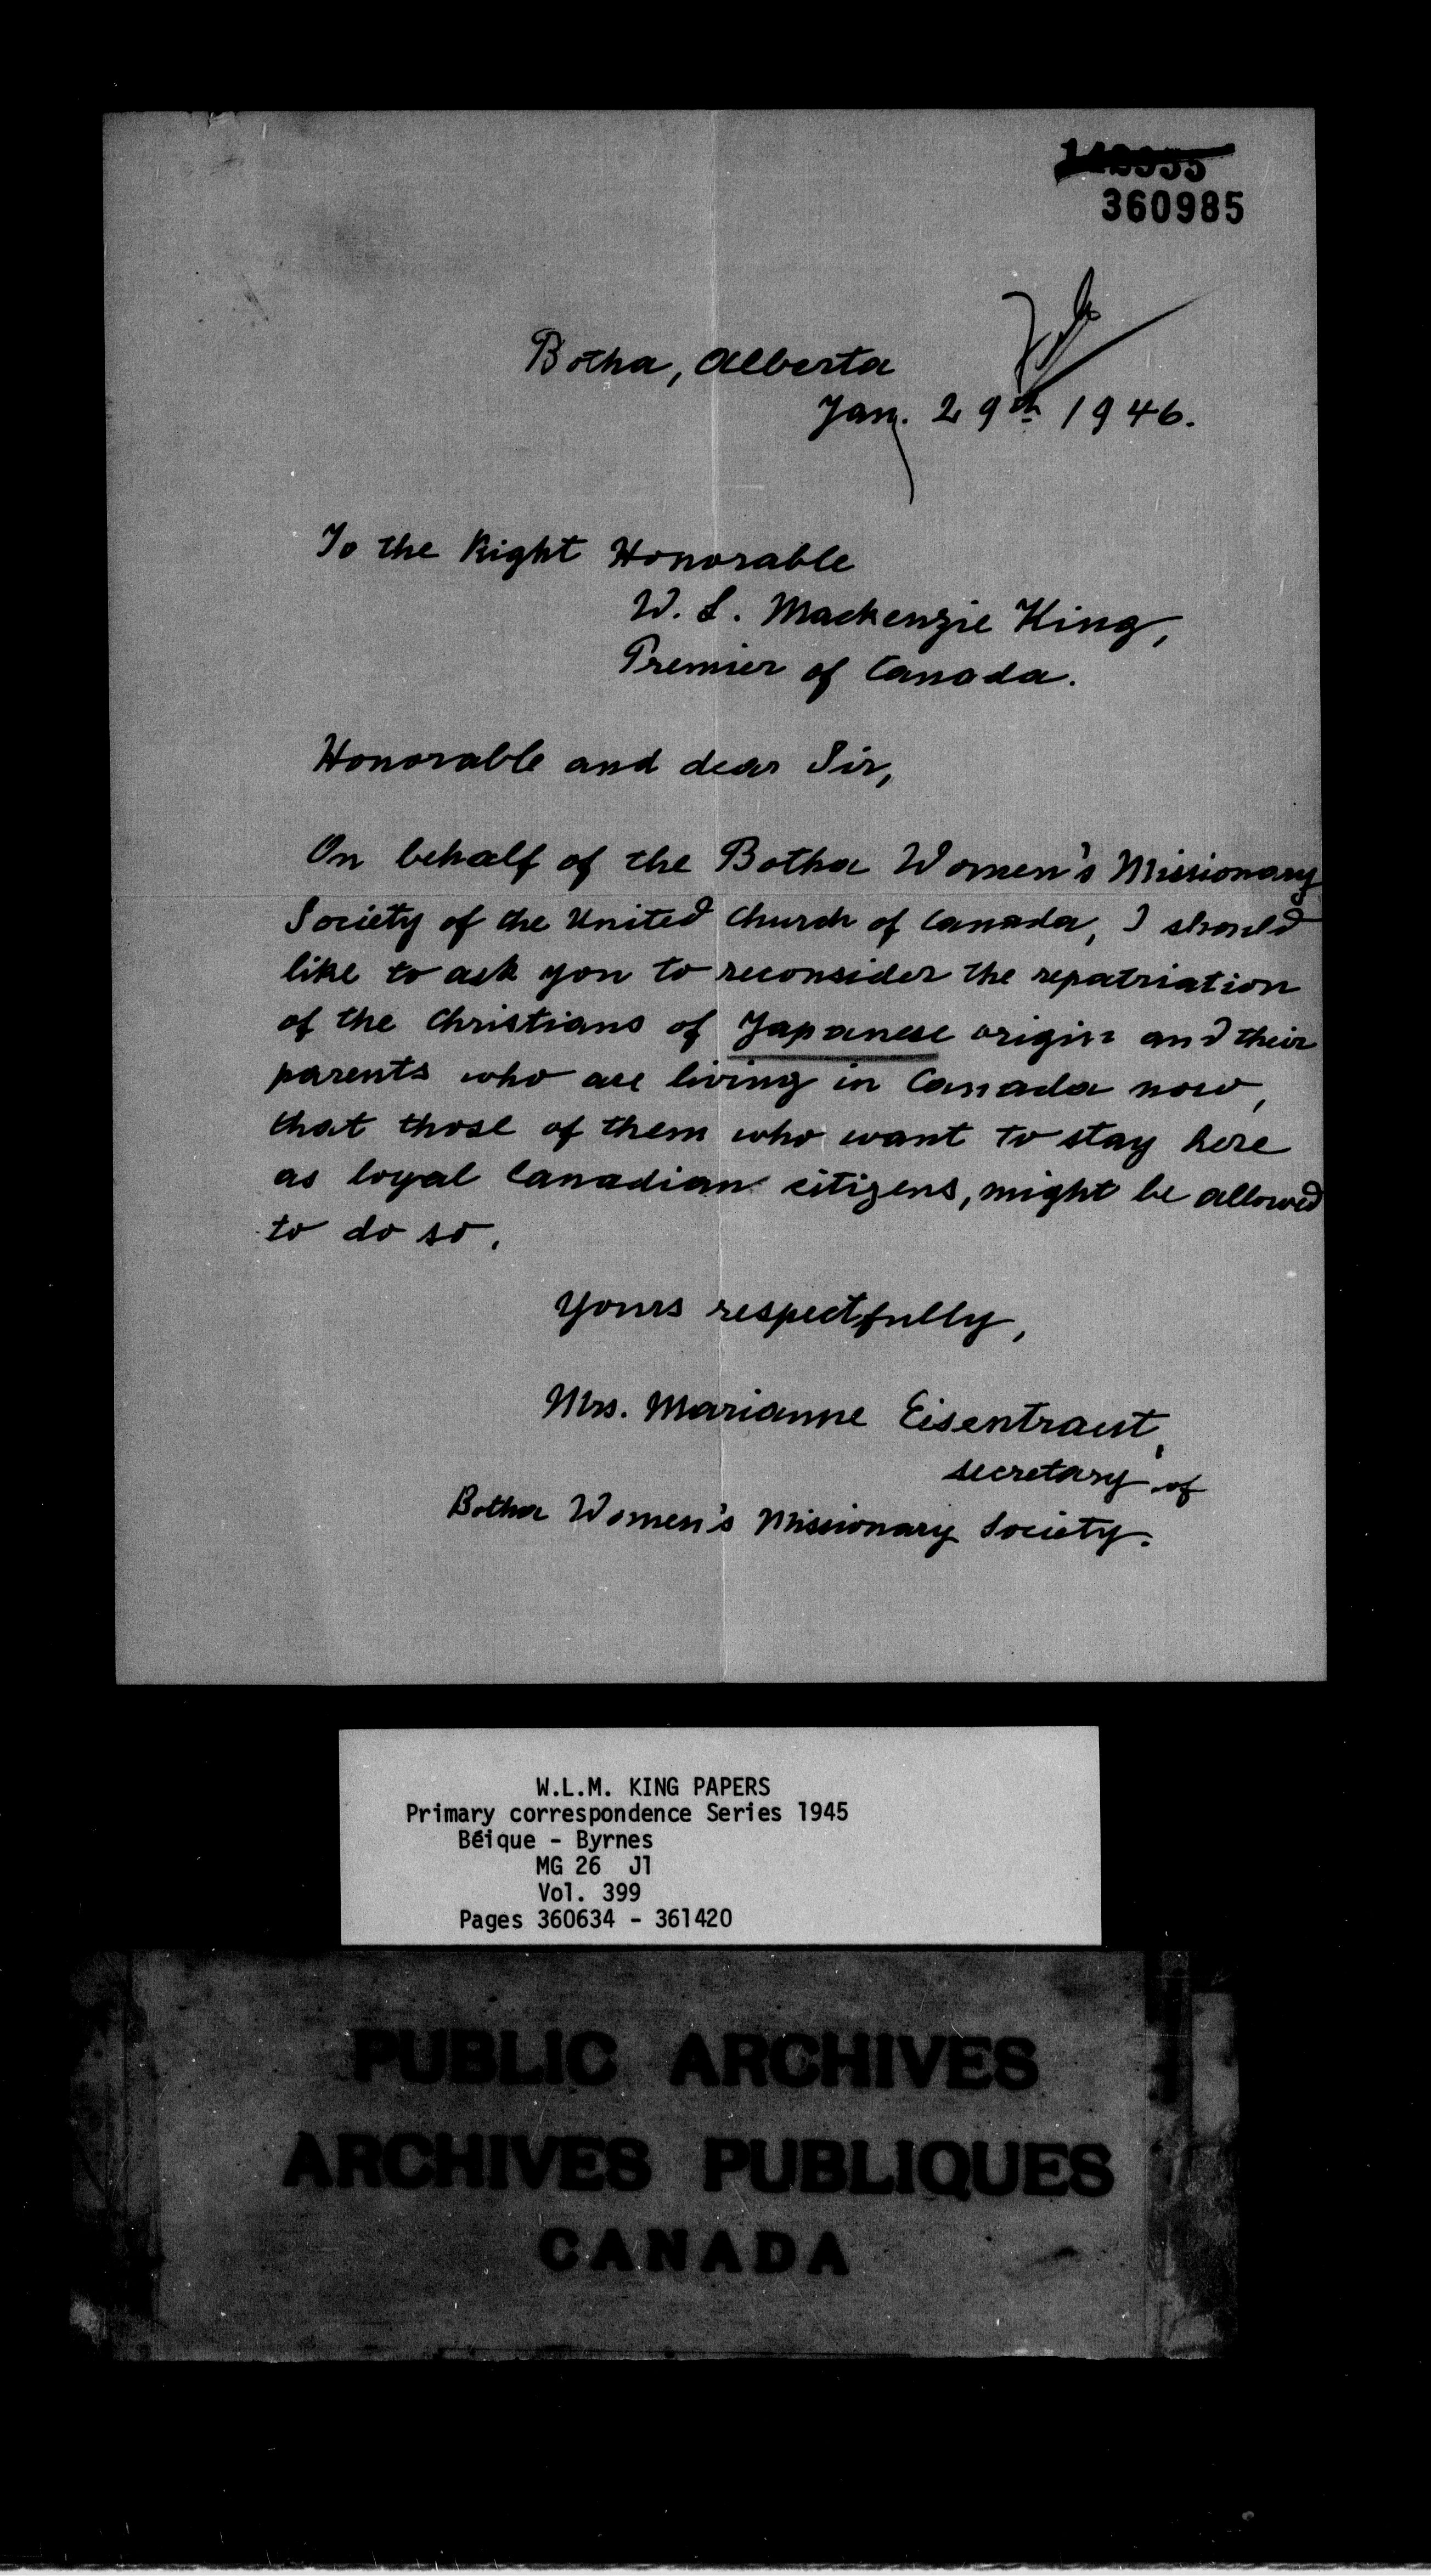 360985
Botha, Alberta
Jan. 29th 1946.
To the Right Honorable
W. L. Mackenzie King,
Premier of Canada.
Honorable and dear Sir,
On behalf of the Botha Women's Missionary
Society of the United Church of Canada, I should
like to ask you to reconsider the repatriation
of the Christians of Japanese origin and their
parents who are living in Canada now,
that those of them who want to stay here
as loyal Canadian citizens, might be allowed
to do so.
Yours respectfully,
Mrs. Marianne Eisentraut,
secretary of
Botha Women's Missionary Society.
W.L.M. KING PAPERS
Primary correspondence Series 1945
Béique - Byrnes
MG 26 J1
Vol. 399
Pages 360634 - 361420
PUBLIC ARCHIVES
ARCHIVES PUBLIQUES
CANADA